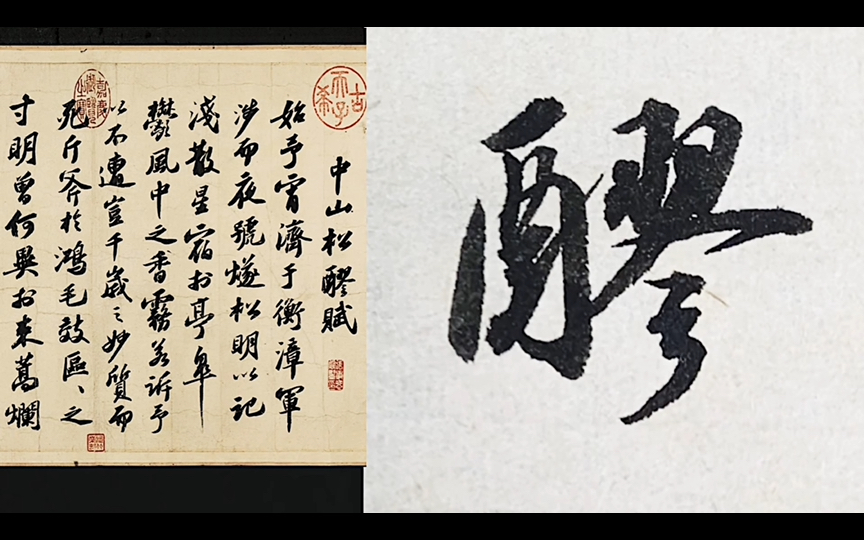 中山松醪賦
始予宵濟于衡漳軍
涉而夜號燧松明以記
淺散星宿於亭皋
鬱風中之香霧若訴予
以不遭豈千歲之妙質而
死斤斧於鴻毛效區區之
寸明曾何異於束蒿爛
醪